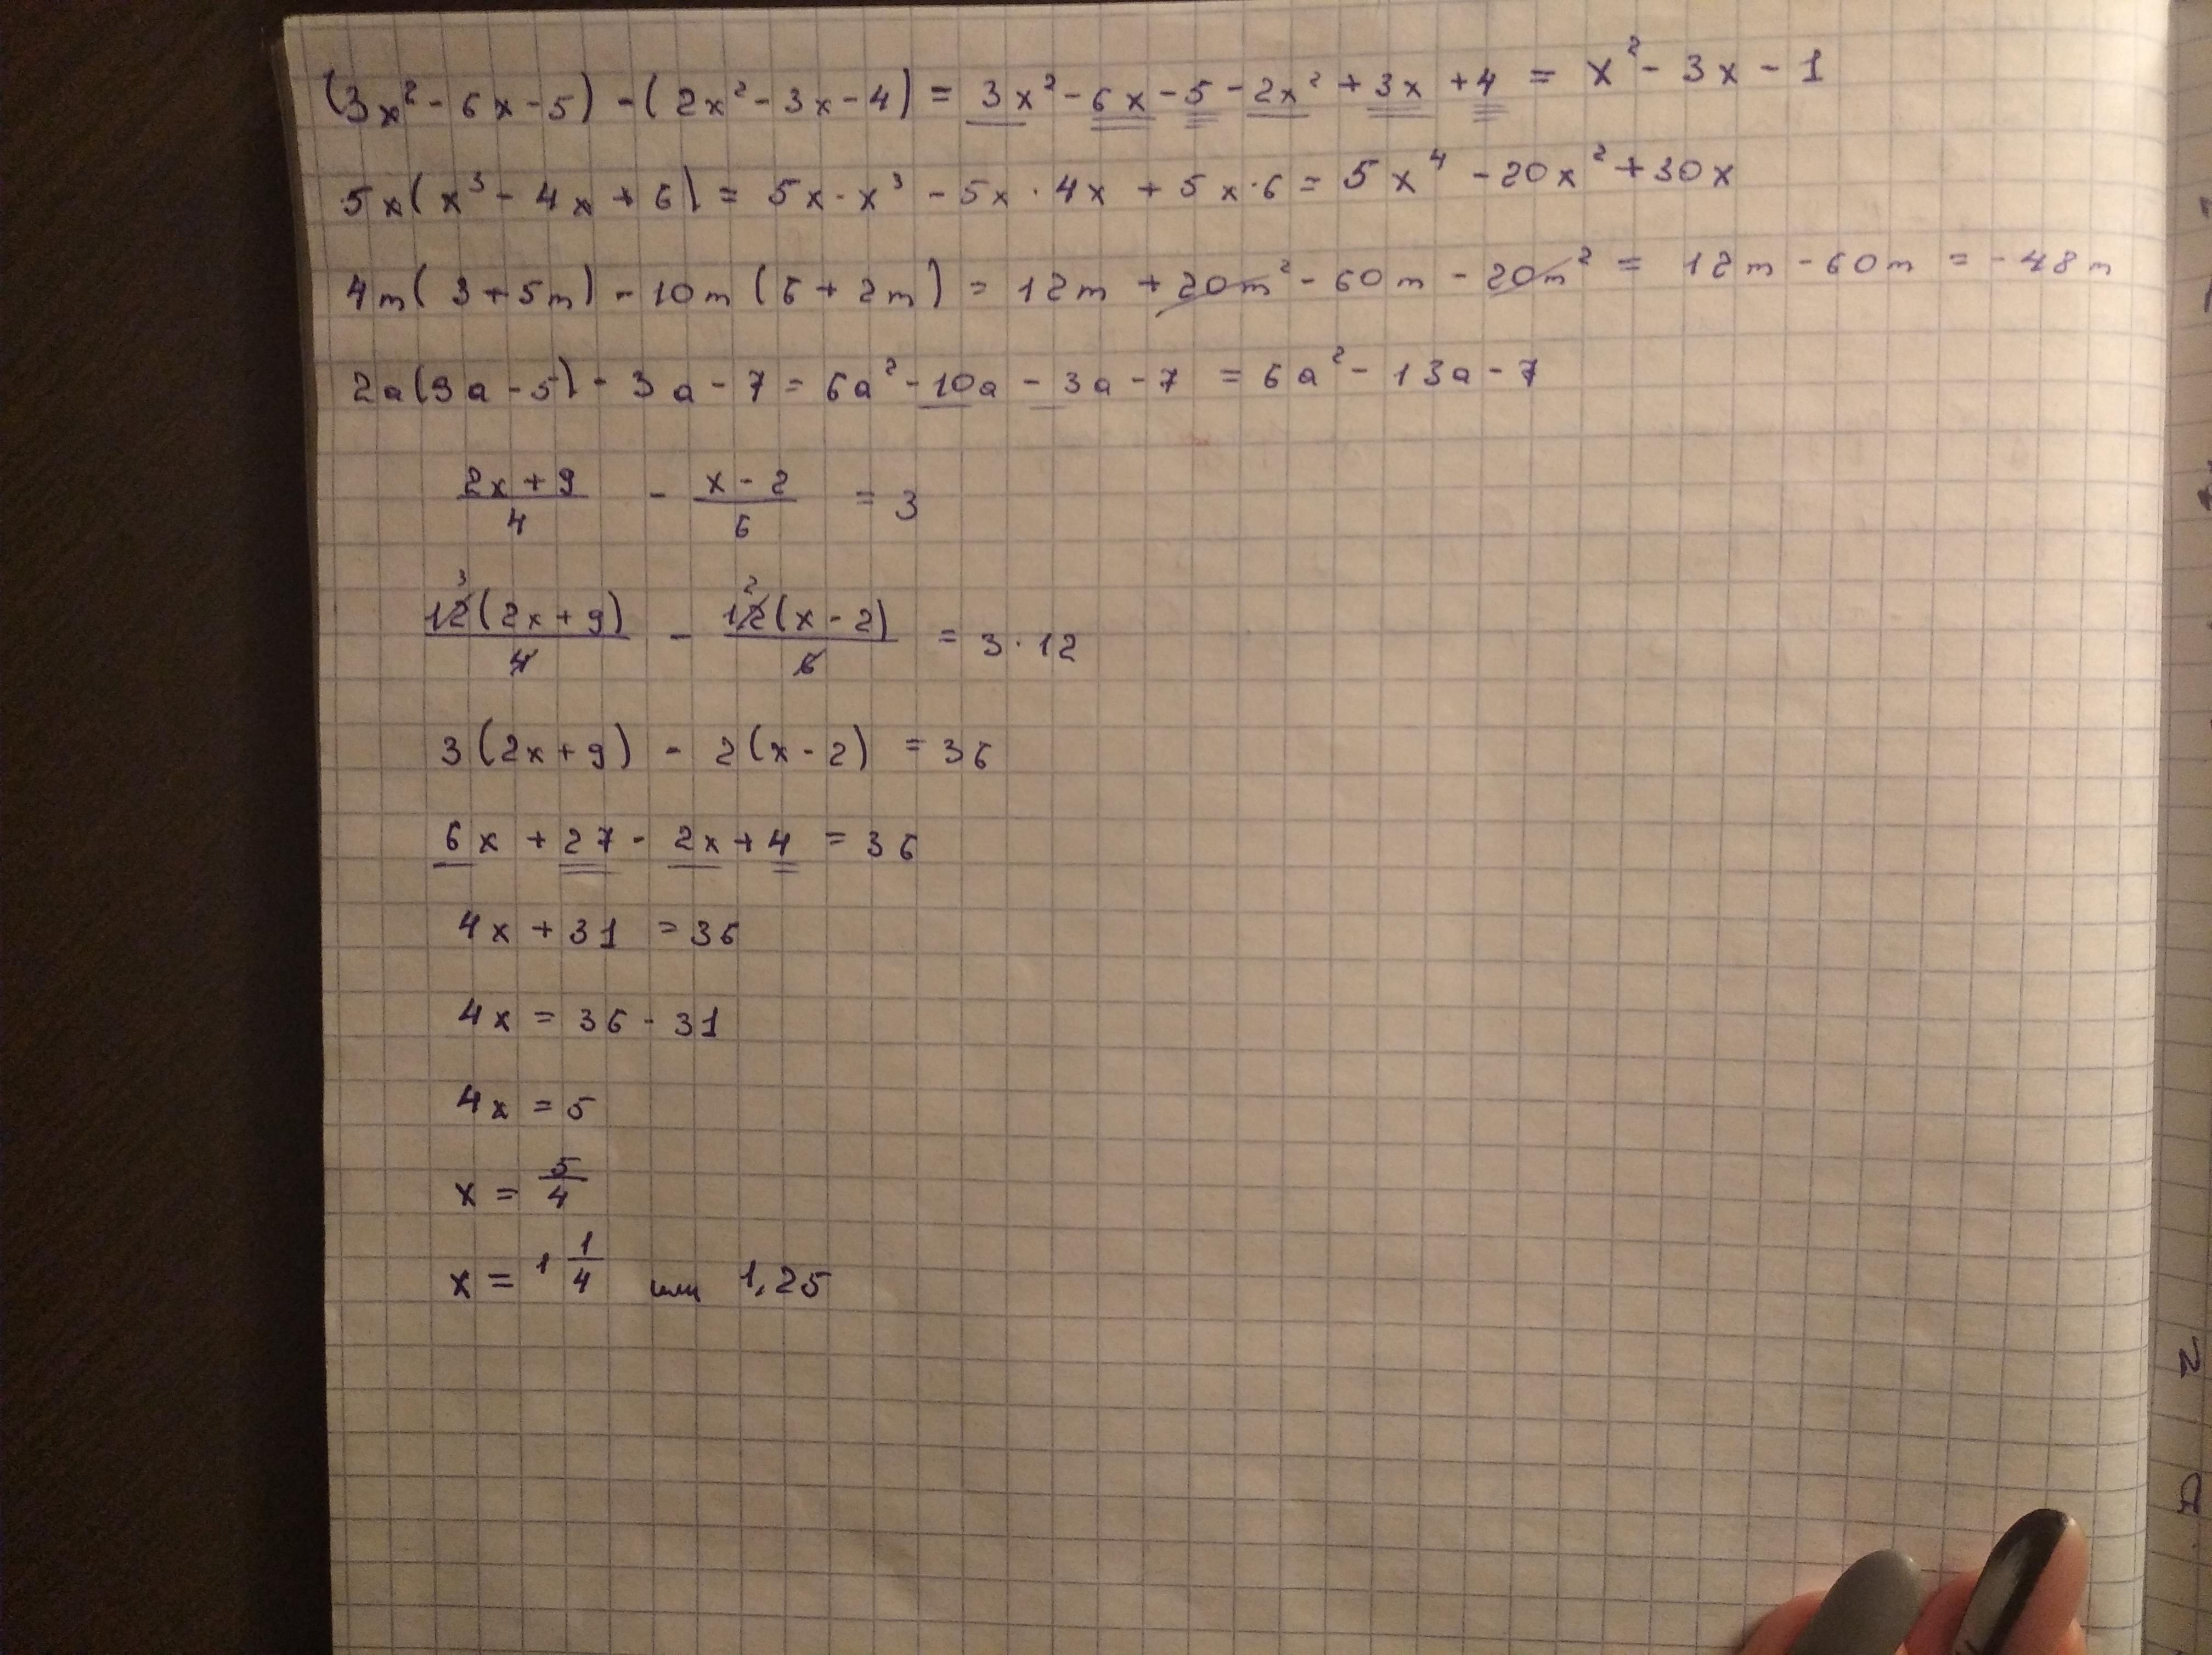 (3x² - 6x - 5) - (2x² - 3x - 4) = 3x² - 6x - 5 - 2x² + 3x + 4 = x² - 3x - 1
5x(x³ - 4x + 6) = 5x · x³ - 5x · 4x + 5x · 6 = 5x⁴ - 20x² + 30x
4m(3 + 5m) - 10m(6 + 2m) = 12m + 20m² - 60m - 20m² = 12m - 60m = -48m
2a(3a - 5) - 3a - 7 = 6a² - 10a - 3a - 7 = 6a² - 13a - 7
(2x + 9)/4 - (x - 2)/6 = 3
³12(2x + 9)/4 - ²12(x - 2)/6 = 3 · 12
3(2x + 9) - 2(x - 2) = 36
6x + 27 - 2x + 4 = 36
4x + 31 = 36
4x = 36 - 31
4x = 5
x = 5/4
x = 1 1/4 или 1,25